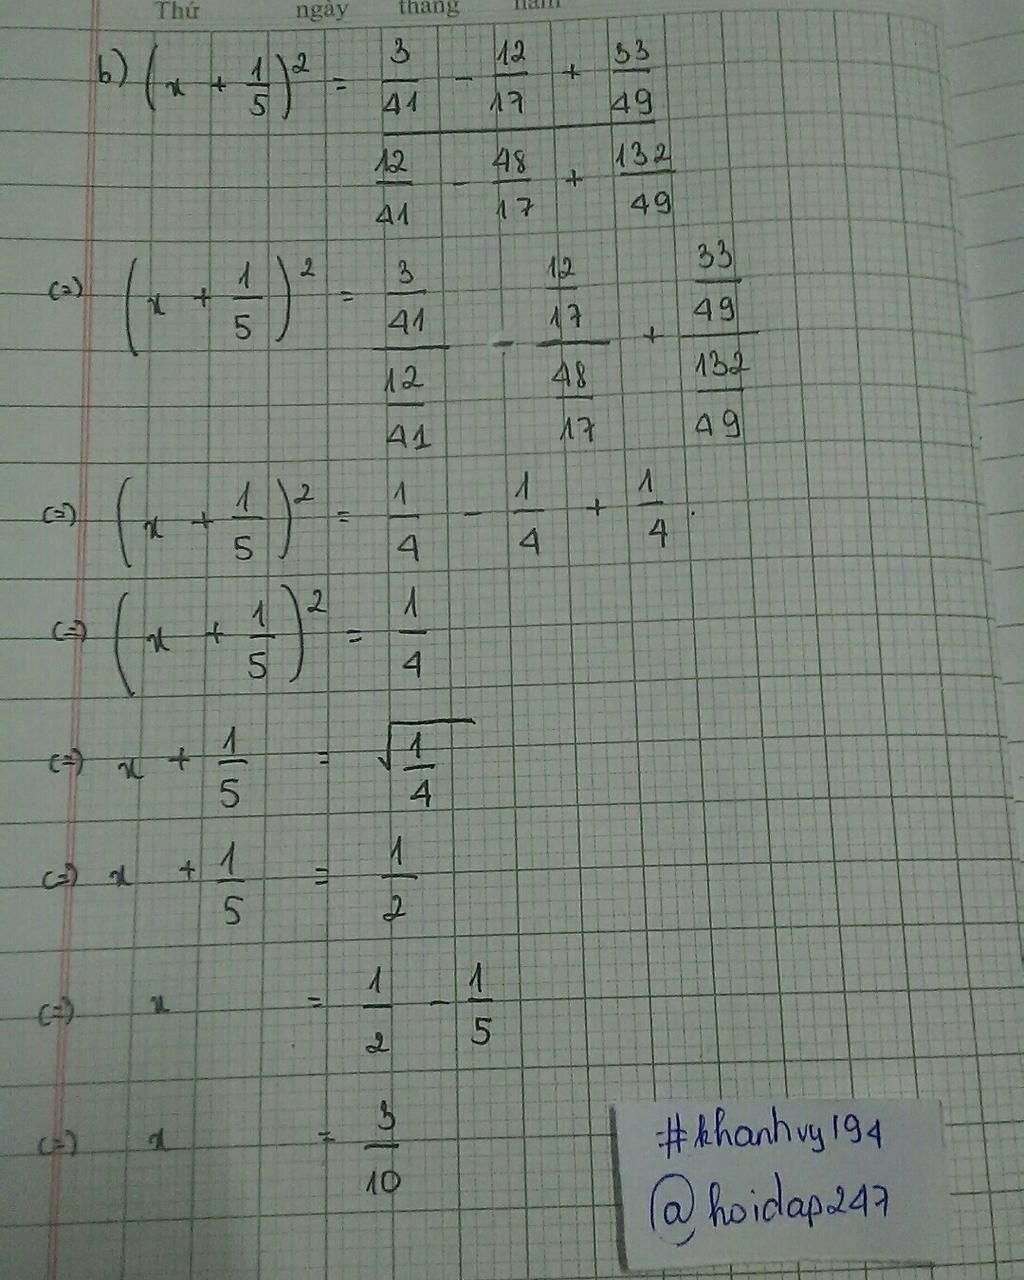 Thứ ngày tháng năm
b) (x + 1/5)² = (3/41 - 12/17 + 33/49) / (12/41 - 48/17 + 132/49)
(=) (x + 1/5)² = (3/41)/(12/41) - (12/17)/(48/17) + (33/49)/(132/49)
(=) (x + 1/5)² = 1/4 - 1/4 + 1/4
(=) (x + 1/5)² = 1/4
(=) x + 1/5 = √(1/4)
(=) x + 1/5 = 1/2
(=) x = 1/2 - 1/5
(=) x = 3/10
#khanhvy194
@hoidap247